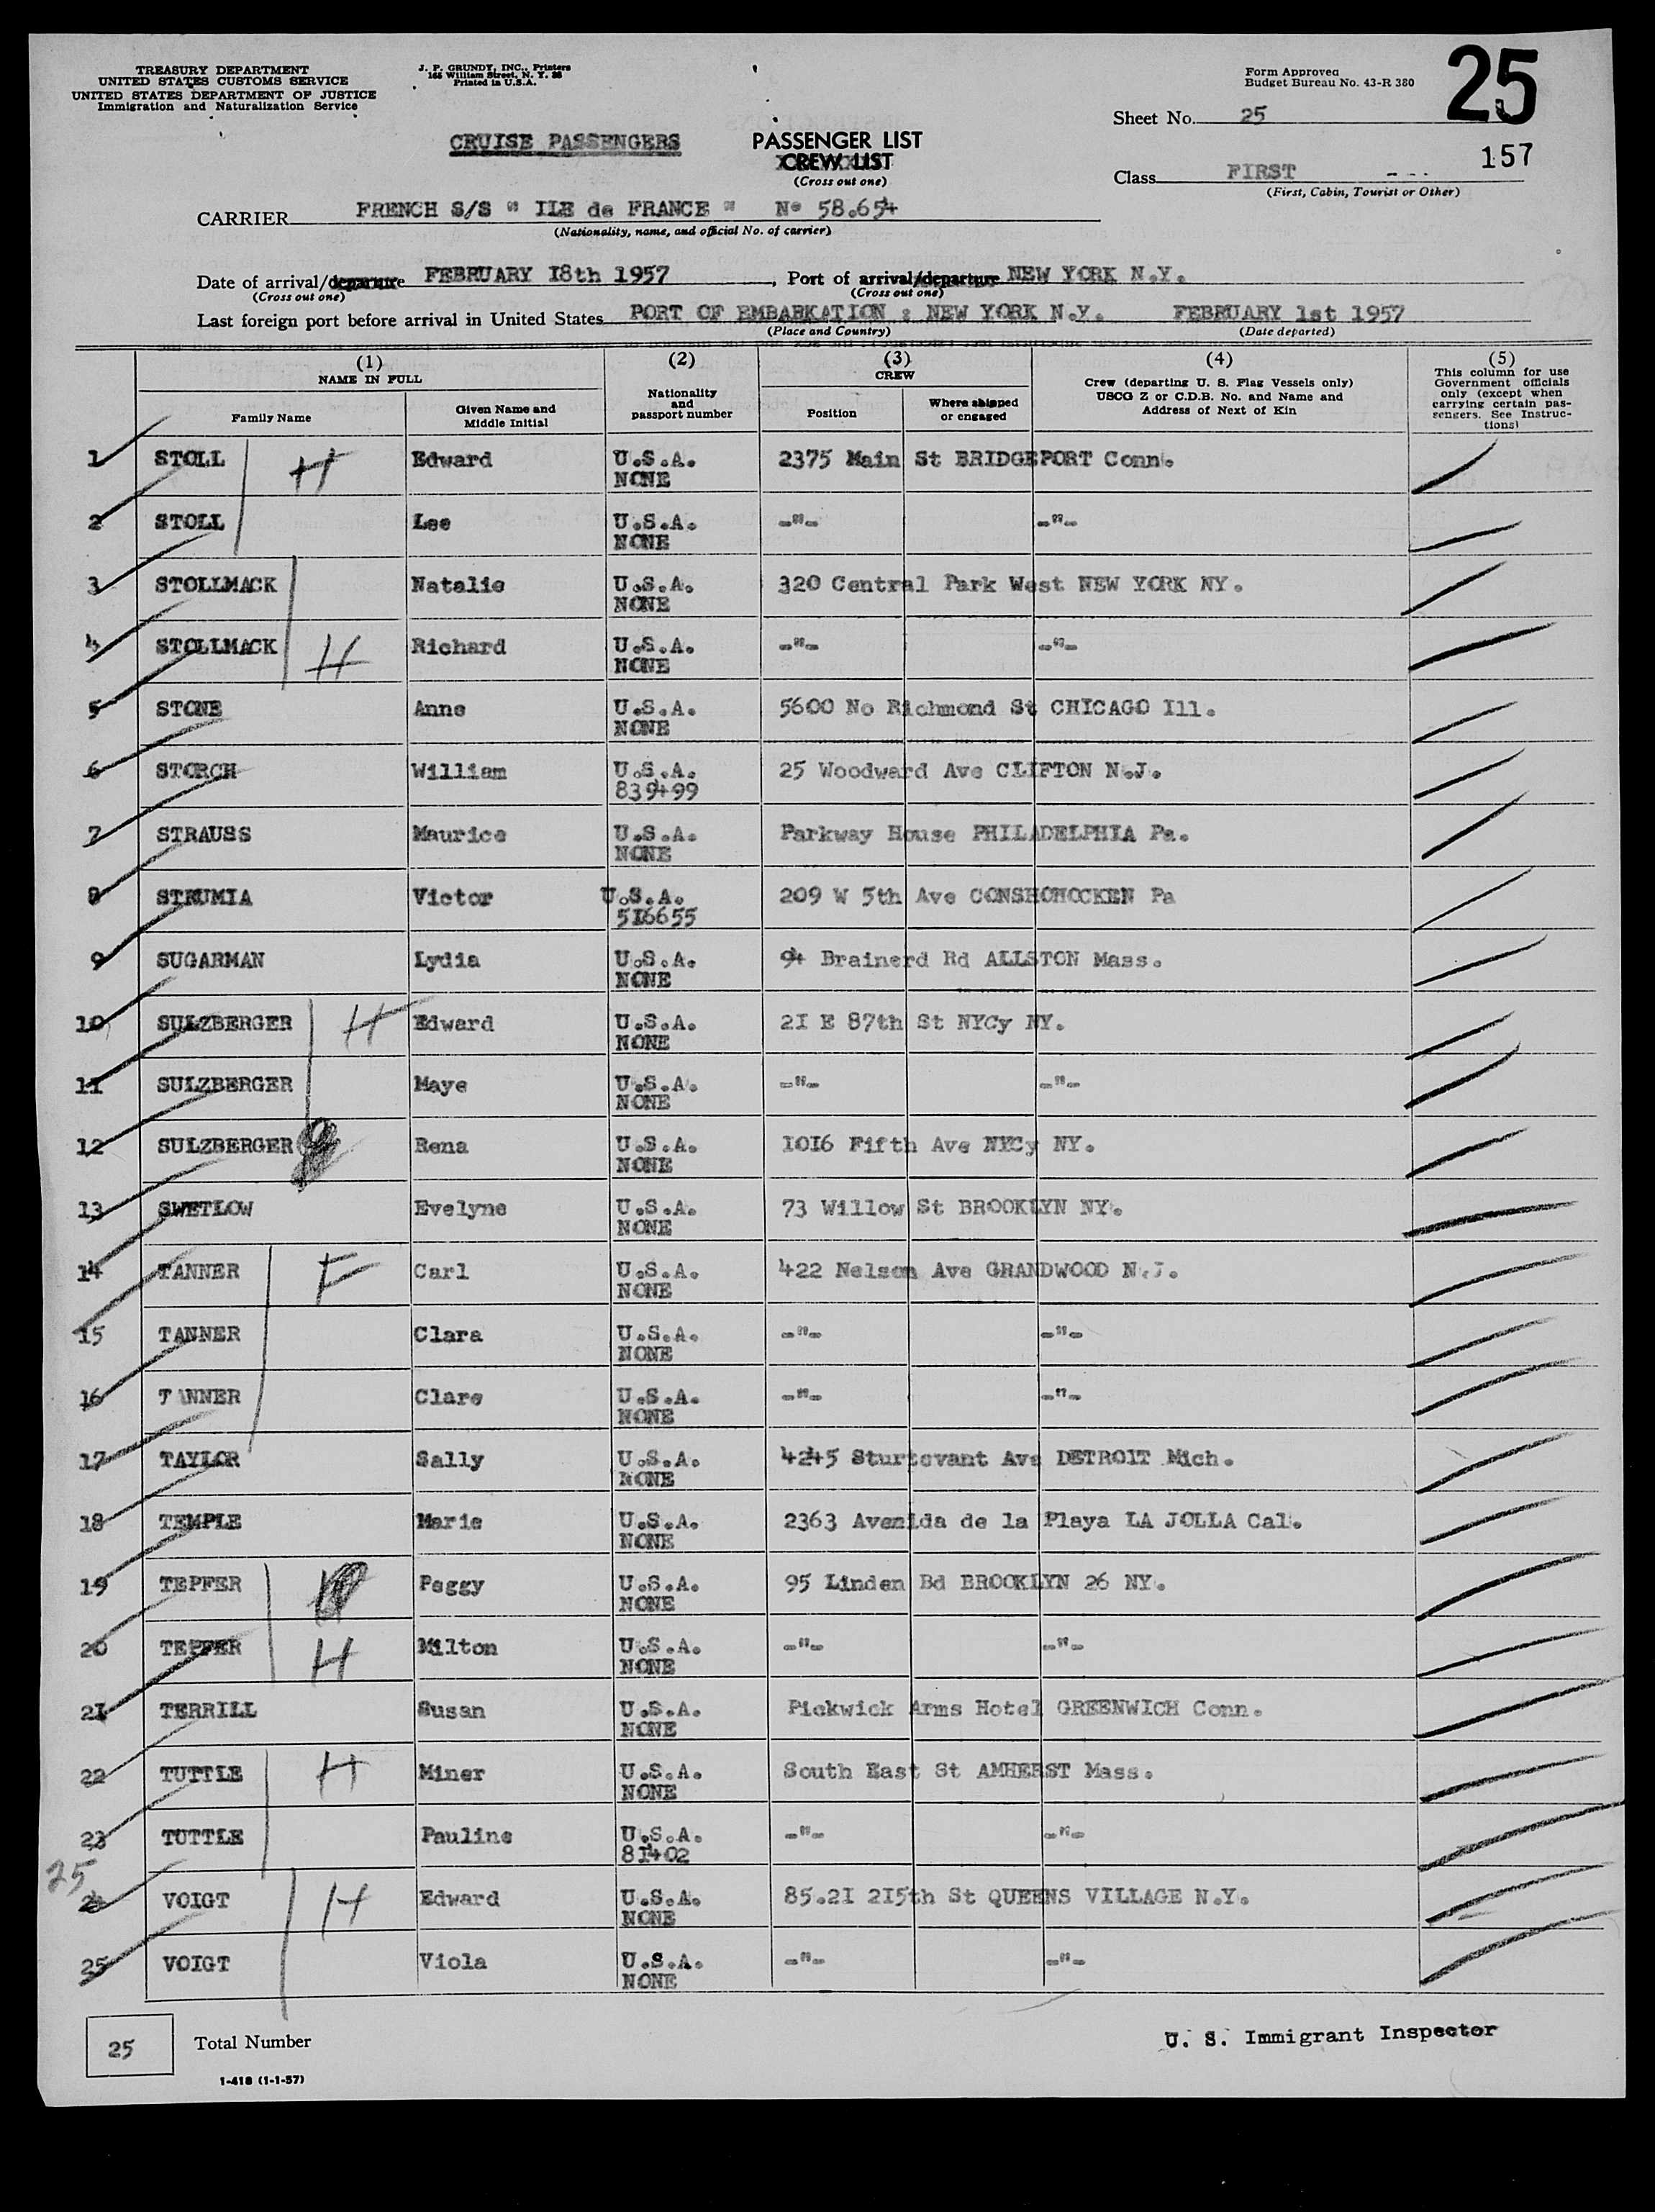 TREASURY DEPARTMENT
UNITED STATES CUSTOMS SERVICE
UNITED STATES DEPARTMENT OF JUSTICE
Immigration and Naturalization Service
J. P. GRUNDY, INC., Printers
Printed in U.S.A.
Form Approved
Budget Bureau No. 43-R 380
25
Sheet No. 25
157
CRUISE PASSENGERS
PASSENGER LIST
CREW LIST
(Cross out one)
Class FIRST
(First, Cabin, Tourist or Other)
CARRIER FRENCH S/S " ILE de FRANCE " N° 58.654
(Nationality, name, and official No. of carrier)
Date of arrival/departure FEBRUARY I8th 1957, Port of arrival/departure NEW YORK N.Y.
(Cross out one) (Cross out one)
Last foreign port before arrival in United States PORT OF EMBARKATION : NEW YORK N.Y. FEBRUARY 1st 1957
(Place and Country) (Date departed)
(1) (2) (3) (4) (5)
NAME IN FULL
Family Name
Given Name and Middle Initial
Nationality and passport number
CREW
Position
Where shipped or engaged
Crew (departing U. S. Flag Vessels only)
USCG Z or C.D.B. No. and Name and
Address of Next of Kin
This column for use
Government officials
only (except when
carrying certain pas-
sengers. See Instruc-
tions)
1 STOLL H Edward U.S.A. 2375 Main St BRIDGEPORT Conn.
NONE
2 STOLL Lee U.S.A. -"- -"-
NONE
3 STOLLMACK Natalie U.S.A. 320 Central Park West NEW YORK NY.
NONE
4 STOLLMACK H Richard U.S.A. -"- -"-
NONE
5 STONE Anne U.S.A. 5600 No Richmond St CHICAGO Ill.
NONE
6 STORCH William U.S.A. 25 Woodward Ave CLIFTON N.J.
839499
7 STRAUSS Maurice U.S.A. Parkway House PHILADELPHIA Pa.
NONE
8 STRUMIA Victor U.S.A. 209 W 5th Ave CONSHOHOCKEN Pa
5I6655
9 SUGARMAN Lydia U.S.A. 94 Brainerd Rd ALLSTON Mass.
NONE
10 SULZBERGER H Edward U.S.A. 2I E 87th St NYCy NY.
NONE
11 SULZBERGER Maye U.S.A. -"- -"-
NONE
12 SULZBERGER Rena U.S.A. I0I6 Fifth Ave NYCy NY.
NONE
13 SWETLOW Evelyne U.S.A. 73 Willow St BROOKLYN NY.
NONE
14 TANNER F Carl U.S.A. 422 Nelson Ave GRANDWOOD N.J.
NONE
15 TANNER Clara U.S.A. -"- -"-
NONE
16 TANNER Clare U.S.A. -"- -"-
NONE
17 TAYLOR Sally U.S.A. 4245 Sturtevant Ave DETROIT Mich.
NONE
18 TEMPLE Marie U.S.A. 2363 Avenida de la Playa LA JOLLA Cal.
NONE
19 TEPFER Peggy U.S.A. 95 Linden Bd BROOKLYN 26 NY.
NONE
20 TEPFER H Milton U.S.A. -"- -"-
NONE
21 TERRILL Susan U.S.A. Pickwick Arms Hotel GREENWICH Conn.
NONE
22 TUTTLE H Miner U.S.A. South East St AMHERST Mass.
NONE
23 TUTTLE Pauline U.S.A. -"- -"-
8I402
25
24 VOIGT H Edward U.S.A. 85.2I 2I5th St QUEENS VILLAGE N.Y.
NONE
25 VOIGT Viola U.S.A. -"- -"-
NONE
25 Total Number
U. S. Immigrant Inspector
1-418 (1-1-57)